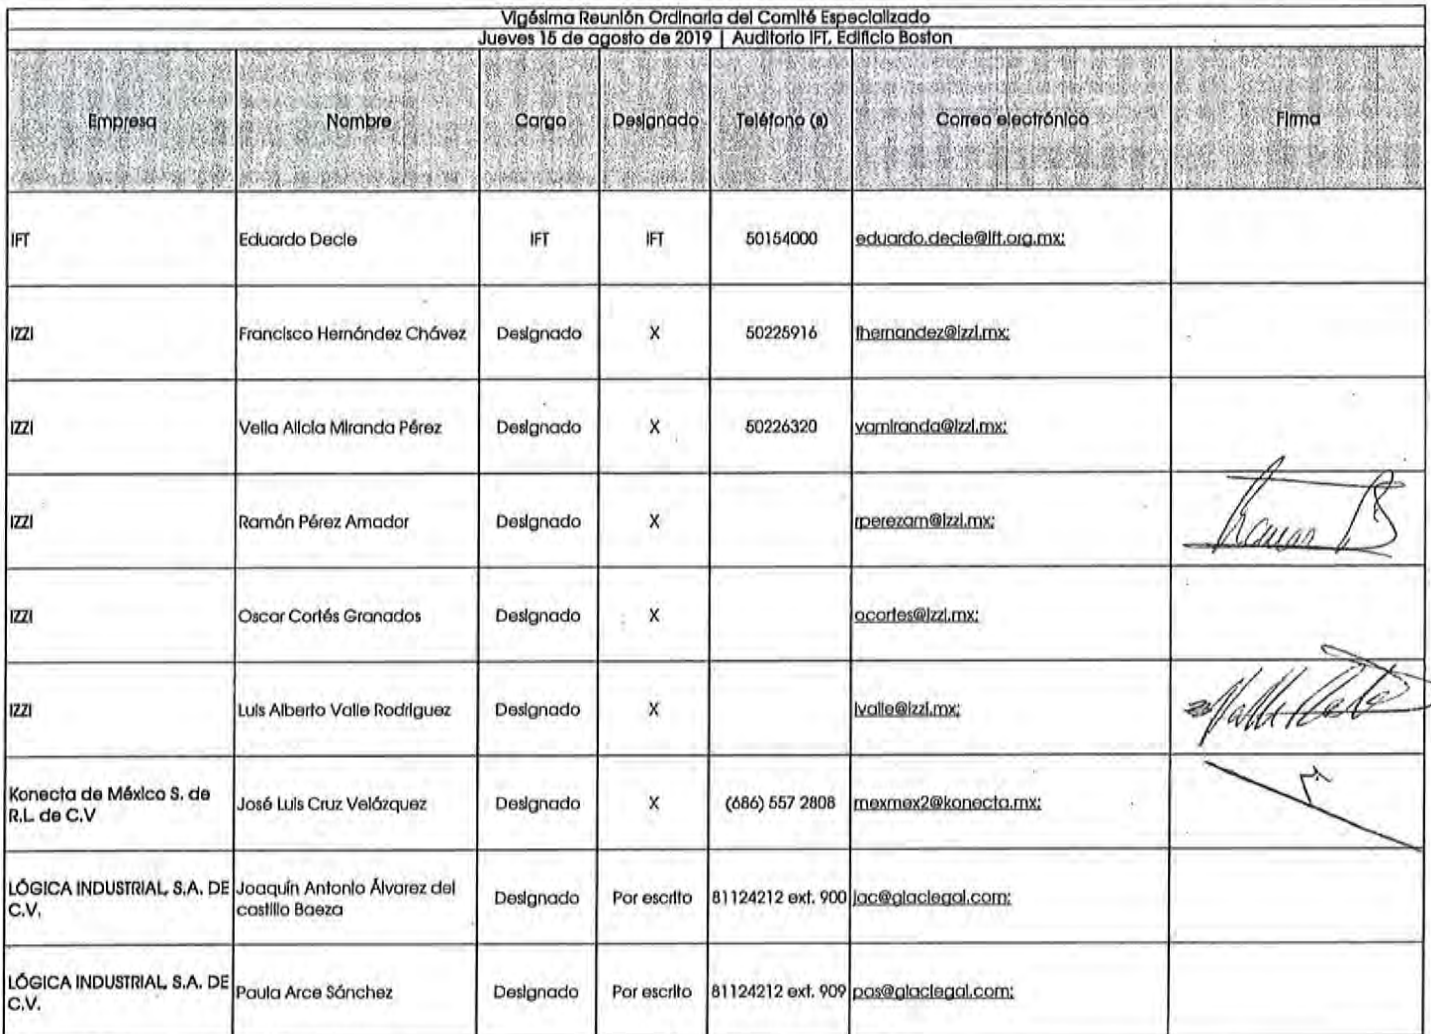 Vigésima Reunión Ordinaria del Comité Especializado
Jueves 15 de agosto de 2019 | Auditorio IFT, Edificio Boston
Empresa Nombre Cargo Designado Teléfono (s) Correo electrónico Firma
IFT Eduardo Decle IFT IFT 50154000 eduardo.decle@ift.org.mx;
IZZI Francisco Hernández Chávez Designado X 50225916 fhernandez@izzi.mx;
IZZI Velia Alicia Miranda Pérez Designado X 50226320 vamiranda@izzi.mx;
IZZI Ramón Pérez Amador Designado X rperezam@izzi.mx;
IZZI Oscar Cortés Granados Designado X ocortes@izzi.mx;
IZZI Luis Alberto Valle Rodríguez Designado X lvalle@izzi.mx;
Konecta de México S. de
R.L. de C.V José Luis Cruz Velázquez Designado X (686) 557 2808 mexmex2@konecta.mx;
LÓGICA INDUSTRIAL, S.A. DE
C.V. Joaquín Antonio Álvarez del
castillo Baeza Designado Por escrito 81124212 ext. 900 jac@glaclegal.com;
LÓGICA INDUSTRIAL, S.A. DE
C.V. Paula Arce Sánchez Designado Por escrito 81124212 ext. 909 pas@glaclegal.com;